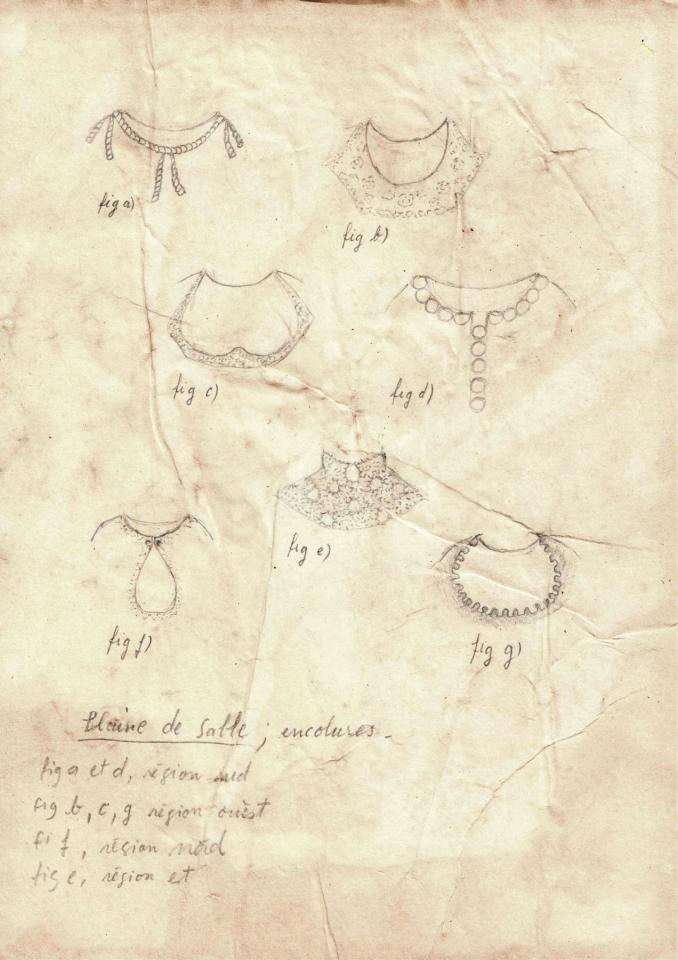 fig a)
fig b)
fig c)
fig d)
fig e)
fig f)
fig g)
Plaine de Salle ; encolures.
fig a et d, région sud
fig b, c, g région ouest
fi f, région nord
fig e, région et